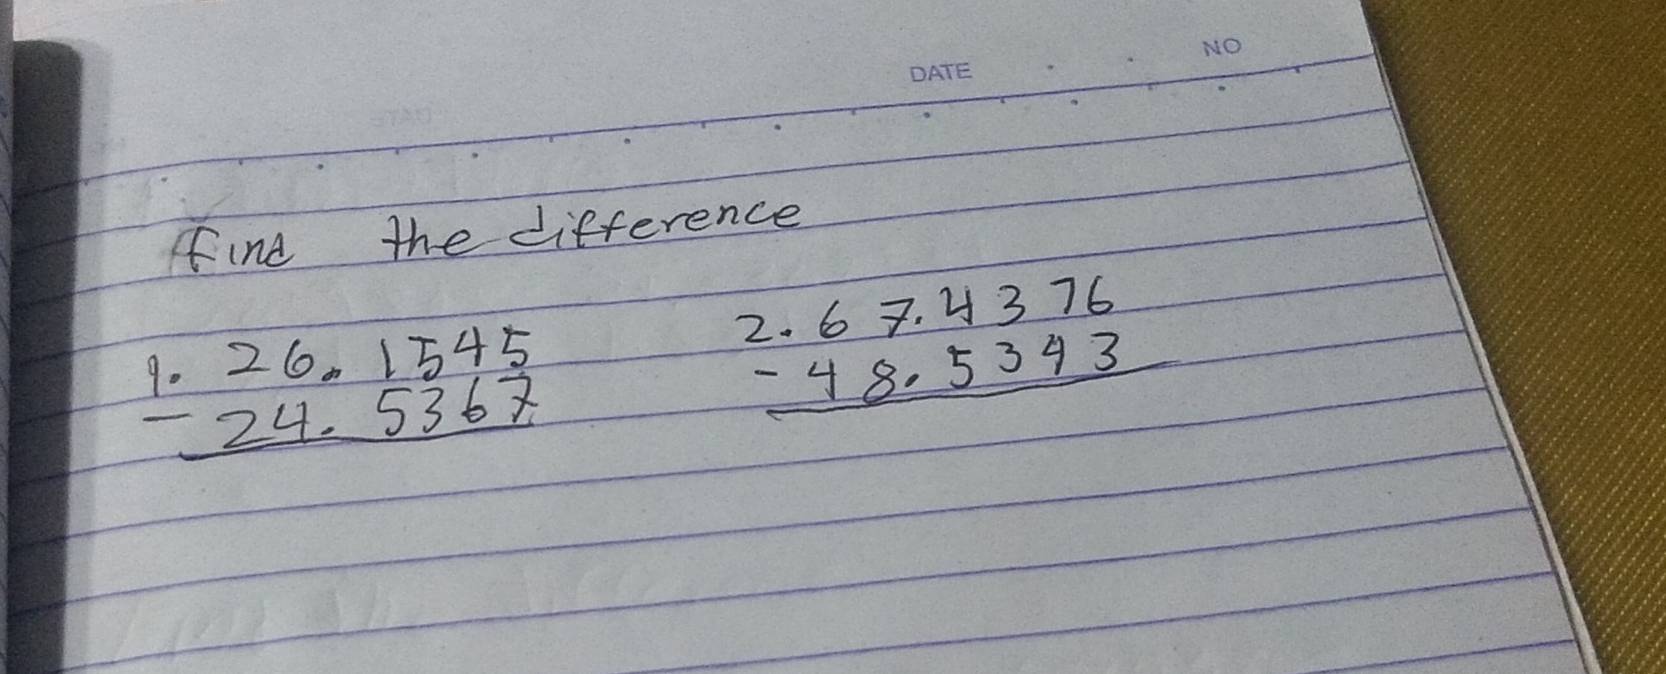 DATE
NO
Find the difference
1. 26.1545
- 24.5367
2. 67.4376
- 48.5343